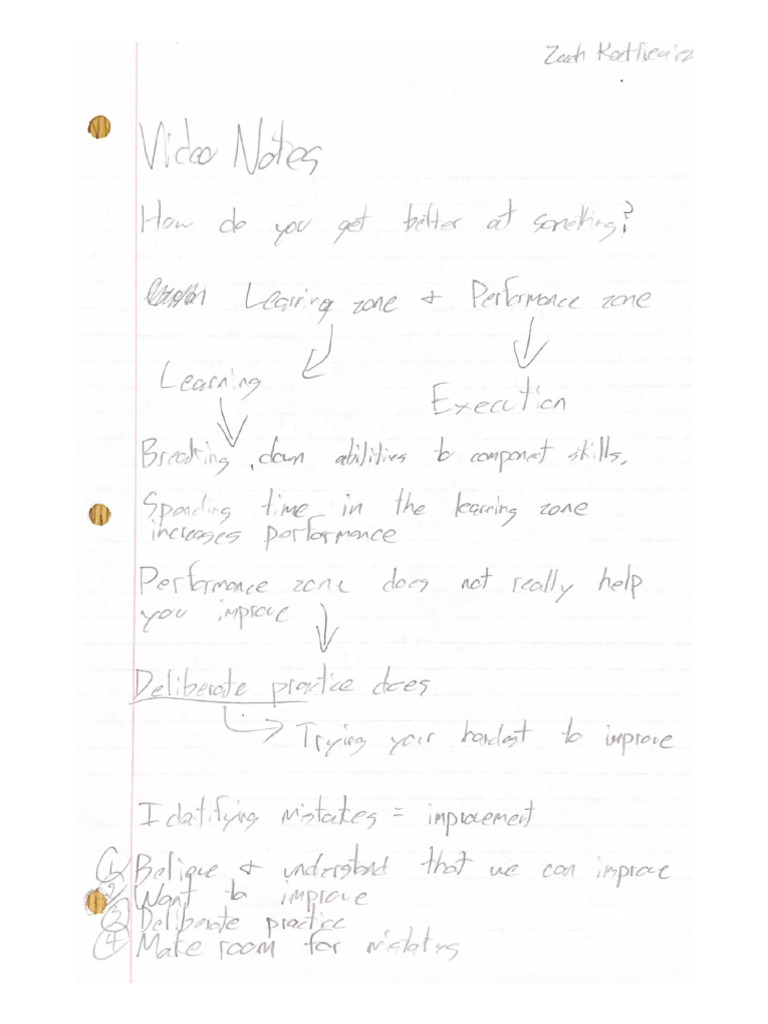 Zach
Video Notes
How do you get better at something?
Learning zone + Performance zone
Learning
Execution
Breaking down abilities to componet skills.
Spending time in the learning zone
increases performance
Performance zone does not really help
you improve
Deliberate practice does
Trying your hardest to improve
Idatifying mistakes = improvement
① Believe + understand that we can improve
② Want to improve
③ Deliberate practice
④ Make room for mistakes